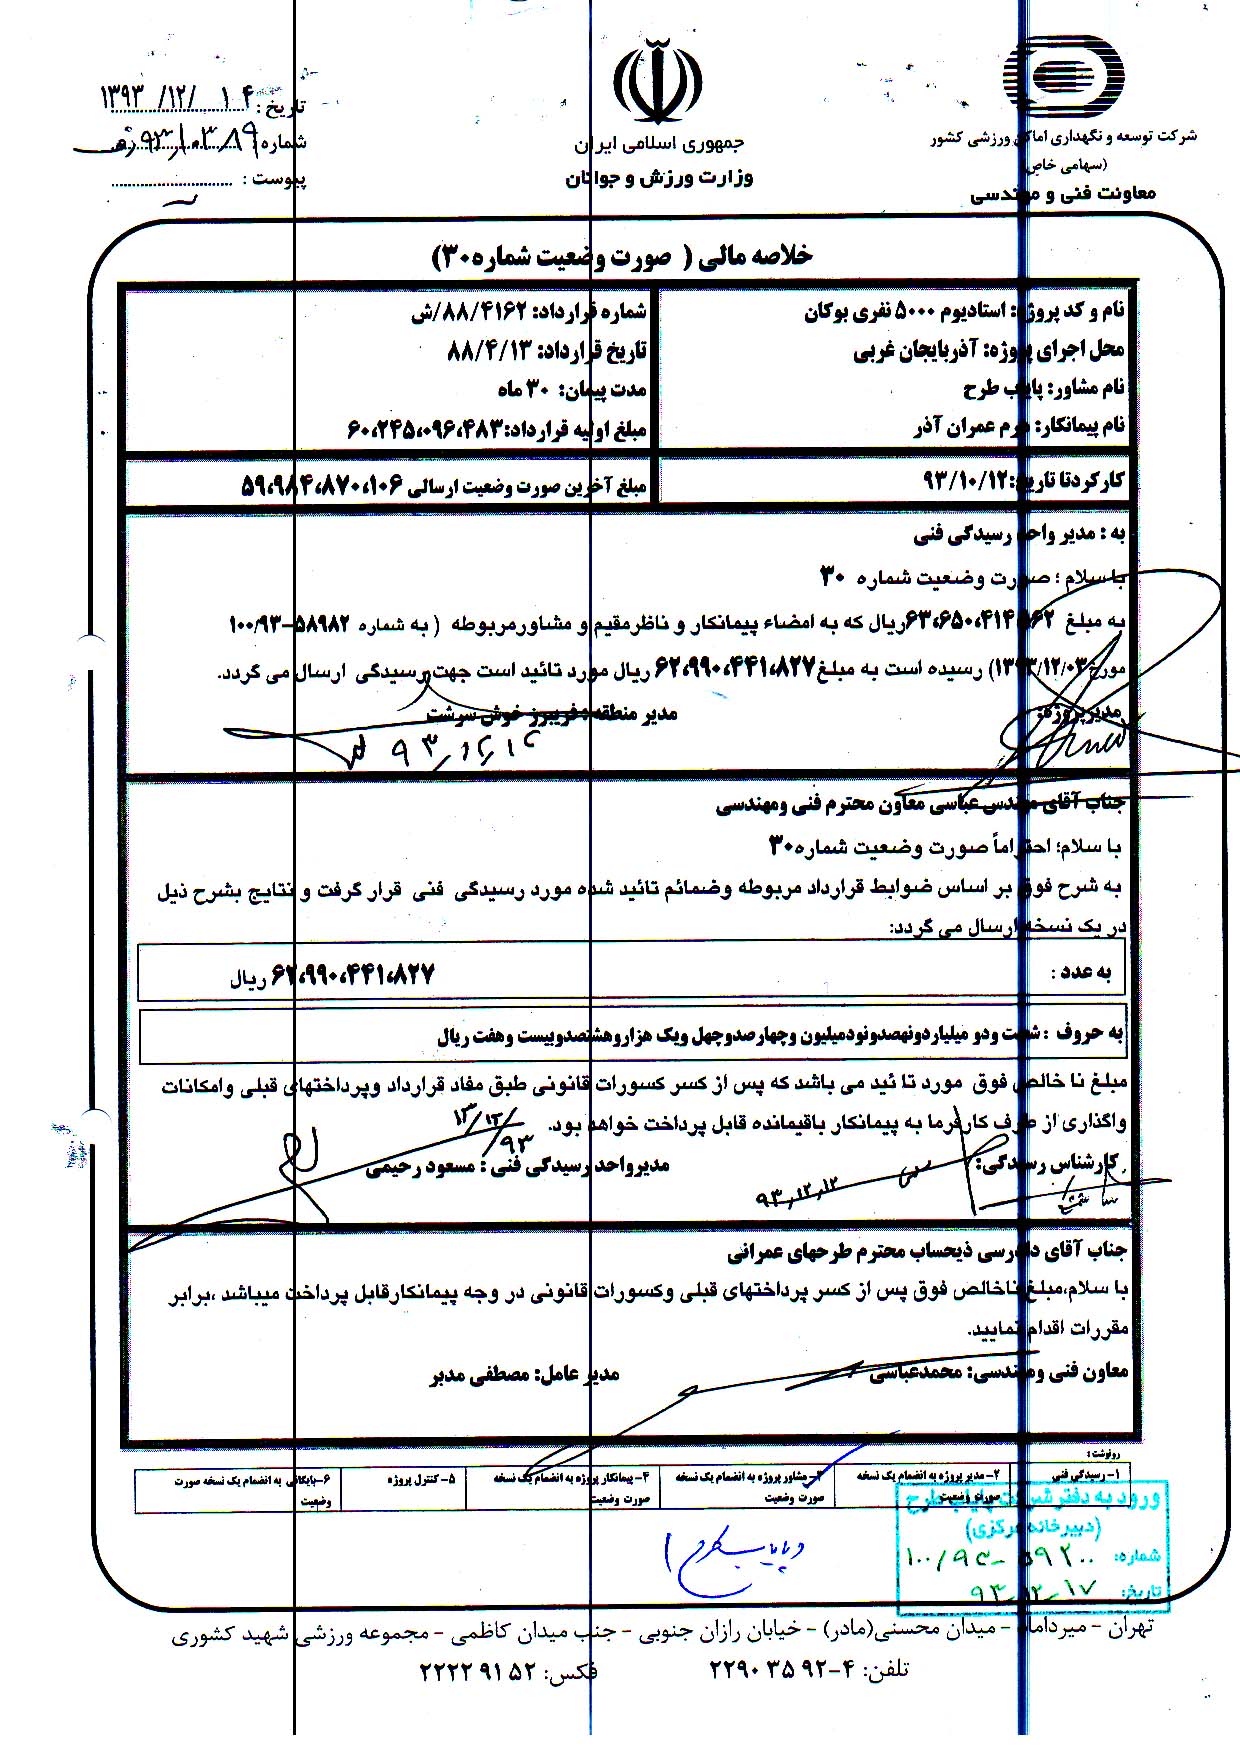 شرکت توسعه و نگهداری اماکن ورزشی کشور
(سهامی خاص)
معاونت فنی و مهندسی
جمهوری اسلامی ایران
وزارت ورزش و جوانان
تاریخ: ۱۳۹۳/۱۲/۰۴
شماره:
پیوست:
خلاصه مالی ( صورت وضعیت شماره۳۰)
نام و کد پروژه: استادیوم ۵۰۰۰ نفری بوکان
محل اجرای پروژه: آذربایجان غربی
نام مشاور: پایاب طرح
نام پیمانکار: هرم عمران آذر
شماره قرارداد: ۸۸/۴۱۶۲/ش
تاریخ قرارداد: ۸۸/۴/۱۳
مدت پیمان: ۳۰ ماه
مبلغ اولیه قرارداد:۶۰،۲۴۵،۰۹۶،۴۸۳
کارکردتا تاریخ:۹۳/۱۰/۱۲
مبلغ آخرین صورت وضعیت ارسالی ۵۹،۹۸۴،۸۷۰،۱۰۶
به : مدیر واحد رسیدگی فنی
با سلام ؛ صورت وضعیت شماره ۳۰
به مبلغ ۶۳،۶۵۰،۴۱۴،۵۶۲ریال که به امضاء پیمانکار و ناظرمقیم و مشاورمربوطه ( به شماره ۵۸۹۸۲–۱۰۰/۹۳
مورخ۱۳۹۳/۱۲/۰۳) رسیده است به مبلغ۶۲،۹۹۰،۴۴۱،۸۲۷ ریال مورد تائید است جهت رسیدگی ارسال می گردد.
مدیرپروژه:
مدیر منطقه : فریبرز خوش سرشت
جناب آقای مهندس عباسی معاون محترم فنی ومهندسی
با سلام؛ احتراماً صورت وضعیت شماره۳۰
به شرح فوق بر اساس ضوابط قرارداد مربوطه وضمائم تائید شده مورد رسیدگی فنی قرار گرفت و نتایج بشرح ذیل
در یک نسخه ارسال می گردد:
به عدد : ۶۲،۹۹۰،۴۴۱،۸۲۷ ریال
به حروف : شصت ودو میلیاردونهصدونودمیلیون وچهارصدوچهل ویک هزاروهشتصدوبیست وهفت ریال
مبلغ نا خالص فوق مورد تا ئید می باشد که پس از کسر کسورات قانونی طبق مفاد قرارداد وپرداختهای قبلی وامکانات
واگذاری از طرف کارفرما به پیمانکار باقیمانده قابل پرداخت خواهد بود.
کارشناس رسیدگی:
مدیرواحد رسیدگی فنی : مسعود رحیمی
۹۳،۱۲،۱۲
جناب آقای دادرسی ذیحساب محترم طرحهای عمرانی
با سلام،مبلغ ناخالص فوق پس از کسر پرداختهای قبلی وکسورات قانونی در وجه پیمانکارقابل پرداخت میباشد ،برابر
مقررات اقدام نمایید.
معاون فنی ومهندسی: محمدعباسی
مدیر عامل: مصطفی مدبر
رونوشت :
۱– رسیدگی فنی
۲– مدیر پروژه به انضمام یک نسخه صورت وضعیت
۳–مشاور پروژه به انضمام یک نسخه صورت وضعیت
۴–پیمانکار پروژه به انضمام یک نسخه صورت وضعیت
۵– کنترل پروژه
۶–بایگانی به انضمام یک نسخه صورت وضعیت
ورود به دفتر شرکت پایاب طرح
(دبیرخانه مرکزی)
شماره: ۱۰۰/۹۳–۵۹۲۰۰
تاریخ: ۹۳–۱۲–۱۷
تهران – میرداماد – میدان محسنی(مادر) – خیابان رازان جنوبی – جنب میدان کاظمی – مجموعه ورزشی شهید کشوری
تلفن: ۴–۲۲۹۰۳۵۹۲ فکس: ۲۲۲۲۹۱۵۲